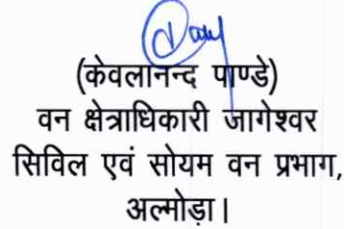 (केवलानन्द पाण्डे)
वन क्षेत्राधिकारी जागेश्वर
सिविल एवं सोयम वन प्रभाग,
अल्मोड़ा।